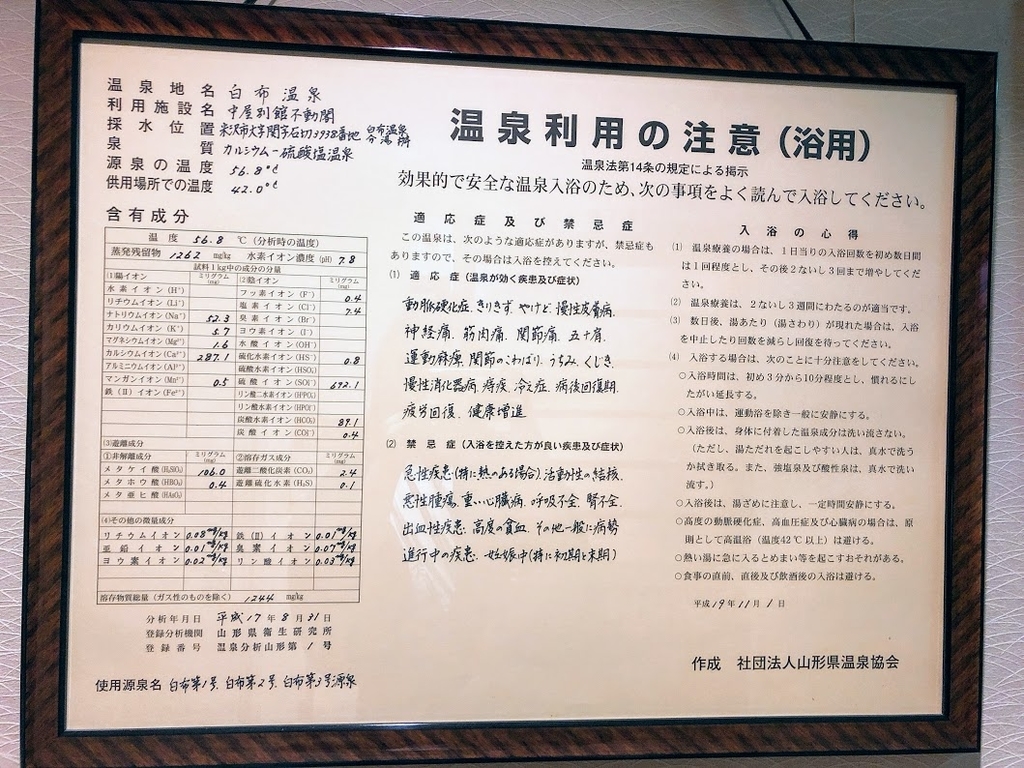 温泉地名 白布温泉
利用施設名 中屋別館不動閣
採水位置 米沢市大字関字石切3938番地 白布温泉分湯所
泉質 カルシウム－硫酸塩温泉
源泉の温度 56.8℃
供用場所での温度 42.0℃
含有成分
温度 56.8 ℃（分析時の温度）
蒸発残留物 1262 mg/kg 水素イオン濃度(pH) 7.8
試料1kg中の成分の分量
(1)陽イオン ミリグラム(mg) (2)陰イオン ミリグラム(mg)
水素イオン(H⁺) フッ素イオン(F⁻) 0.4
リチウムイオン(Li⁺) 塩素イオン(Cl⁻) 7.4
ナトリウムイオン(Na⁺) 52.3 臭素イオン(Br⁻)
カリウムイオン(K⁺) 5.7 ヨウ素イオン(I⁻)
マグネシウムイオン(Mg²⁺) 1.6 水酸イオン(OH⁻)
カルシウムイオン(Ca²⁺) 287.1 硫化水素イオン(HS⁻) 0.8
アルミニウムイオン(Al³⁺) 硫酸水素イオン(HSO₄⁻)
マンガンイオン(Mn²⁺) 0.5 硫酸イオン(SO₄²⁻) 692.1
鉄(Ⅱ)イオン(Fe²⁺) リン酸二水素イオン(H₂PO₄⁻)
リン酸水素イオン(HPO₄²⁻)
炭酸水素イオン(HCO₃⁻) 89.1
炭酸イオン(CO₃²⁻) 0.4
(3)遊離成分
①非解離成分 ミリグラム(mg) ②溶存ガス成分 ミリグラム(mg)
メタケイ酸(H₂SiO₃) 106.0 遊離二酸化炭素(CO₂) 2.4
メタホウ酸(HBO₂) 0.4 遊離硫化水素(H₂S) 0.1
メタ亜ヒ酸(HAsO₂)
(4)その他の微量成分
リチウムイオン 0.08mg/kg 鉄(Ⅱ)イオン 0.01mg/kg
亜鉛イオン 0.01mg/kg 臭素イオン 0.07mg/kg
ヨウ素イオン 0.02mg/kg リン酸イオン 0.03mg/kg
溶存物質総量（ガス性のものを除く） 1244 mg/kg
分析年月日 平成17年8月31日
登録分析機関 山形県衛生研究所
登録番号 温泉分析山形第1号
使用源泉名 白布第1号、白布第2号、白布第3号源泉
温泉利用の注意（浴用）
温泉法第14条の規定による掲示
効果的で安全な温泉入浴のため、次の事項をよく読んで入浴してください。
適応症及び禁忌症
この温泉は、次のような適応症がありますが、禁忌症も
ありますので、その場合は入浴を控えてください。
(1) 適応症（温泉が効く疾患及び症状）
動脈硬化症、きりきず、やけど、慢性皮膚病、
神経痛、筋肉痛、関節痛、五十肩、
運動麻痺、関節のこわばり、うちみ、くじき、
慢性消化器病、痔疾、冷え症、病後回復期、
疲労回復、健康増進
(2) 禁忌症（入浴を控えた方が良い疾患及び症状）
急性疾患(特に熱のある場合)、活動性の結核、
悪性腫瘍、重い心臓病、呼吸不全、腎不全、
出血性疾患、高度の貧血、その他一般に病勢
進行中の疾患、妊娠中(特に初期と末期)
入浴の心得
(1) 温泉療養の場合は、1日当りの入浴回数を初め数日間
は1回程度とし、その後2ないし3回まで増やしてくだ
さい。
(2) 温泉療養は、2ないし3週間にわたるのが適当です。
(3) 数日後、湯あたり（湯さわり）が現れた場合は、入浴
を中止したり回数を減らし回復を待ってください。
(4) 入浴する場合は、次のことに十分注意をしてください。
○入浴時間は、初め3分から10分程度とし、慣れるにし
たがい延長する。
○入浴中は、運動浴を除き一般に安静にする。
○入浴後は、身体に付着した温泉成分は洗い流さない。
（ただし、湯ただれを起こしやすい人は、真水で洗う
か拭き取る。また、強塩泉及び酸性泉は、真水で洗い
流す。）
○入浴後は、湯ざめに注意し、一定時間安静する。
○高度の動脈硬化症、高血圧症及び心臓病の場合は、原
則として高温浴（温度42℃以上）は避ける。
○熱い湯に急に入るとめまい等を起こすおそれがある。
○食事の直前、直後及び飲酒後の入浴は避ける。
平成19年11月1日
作成 社団法人山形県温泉協会